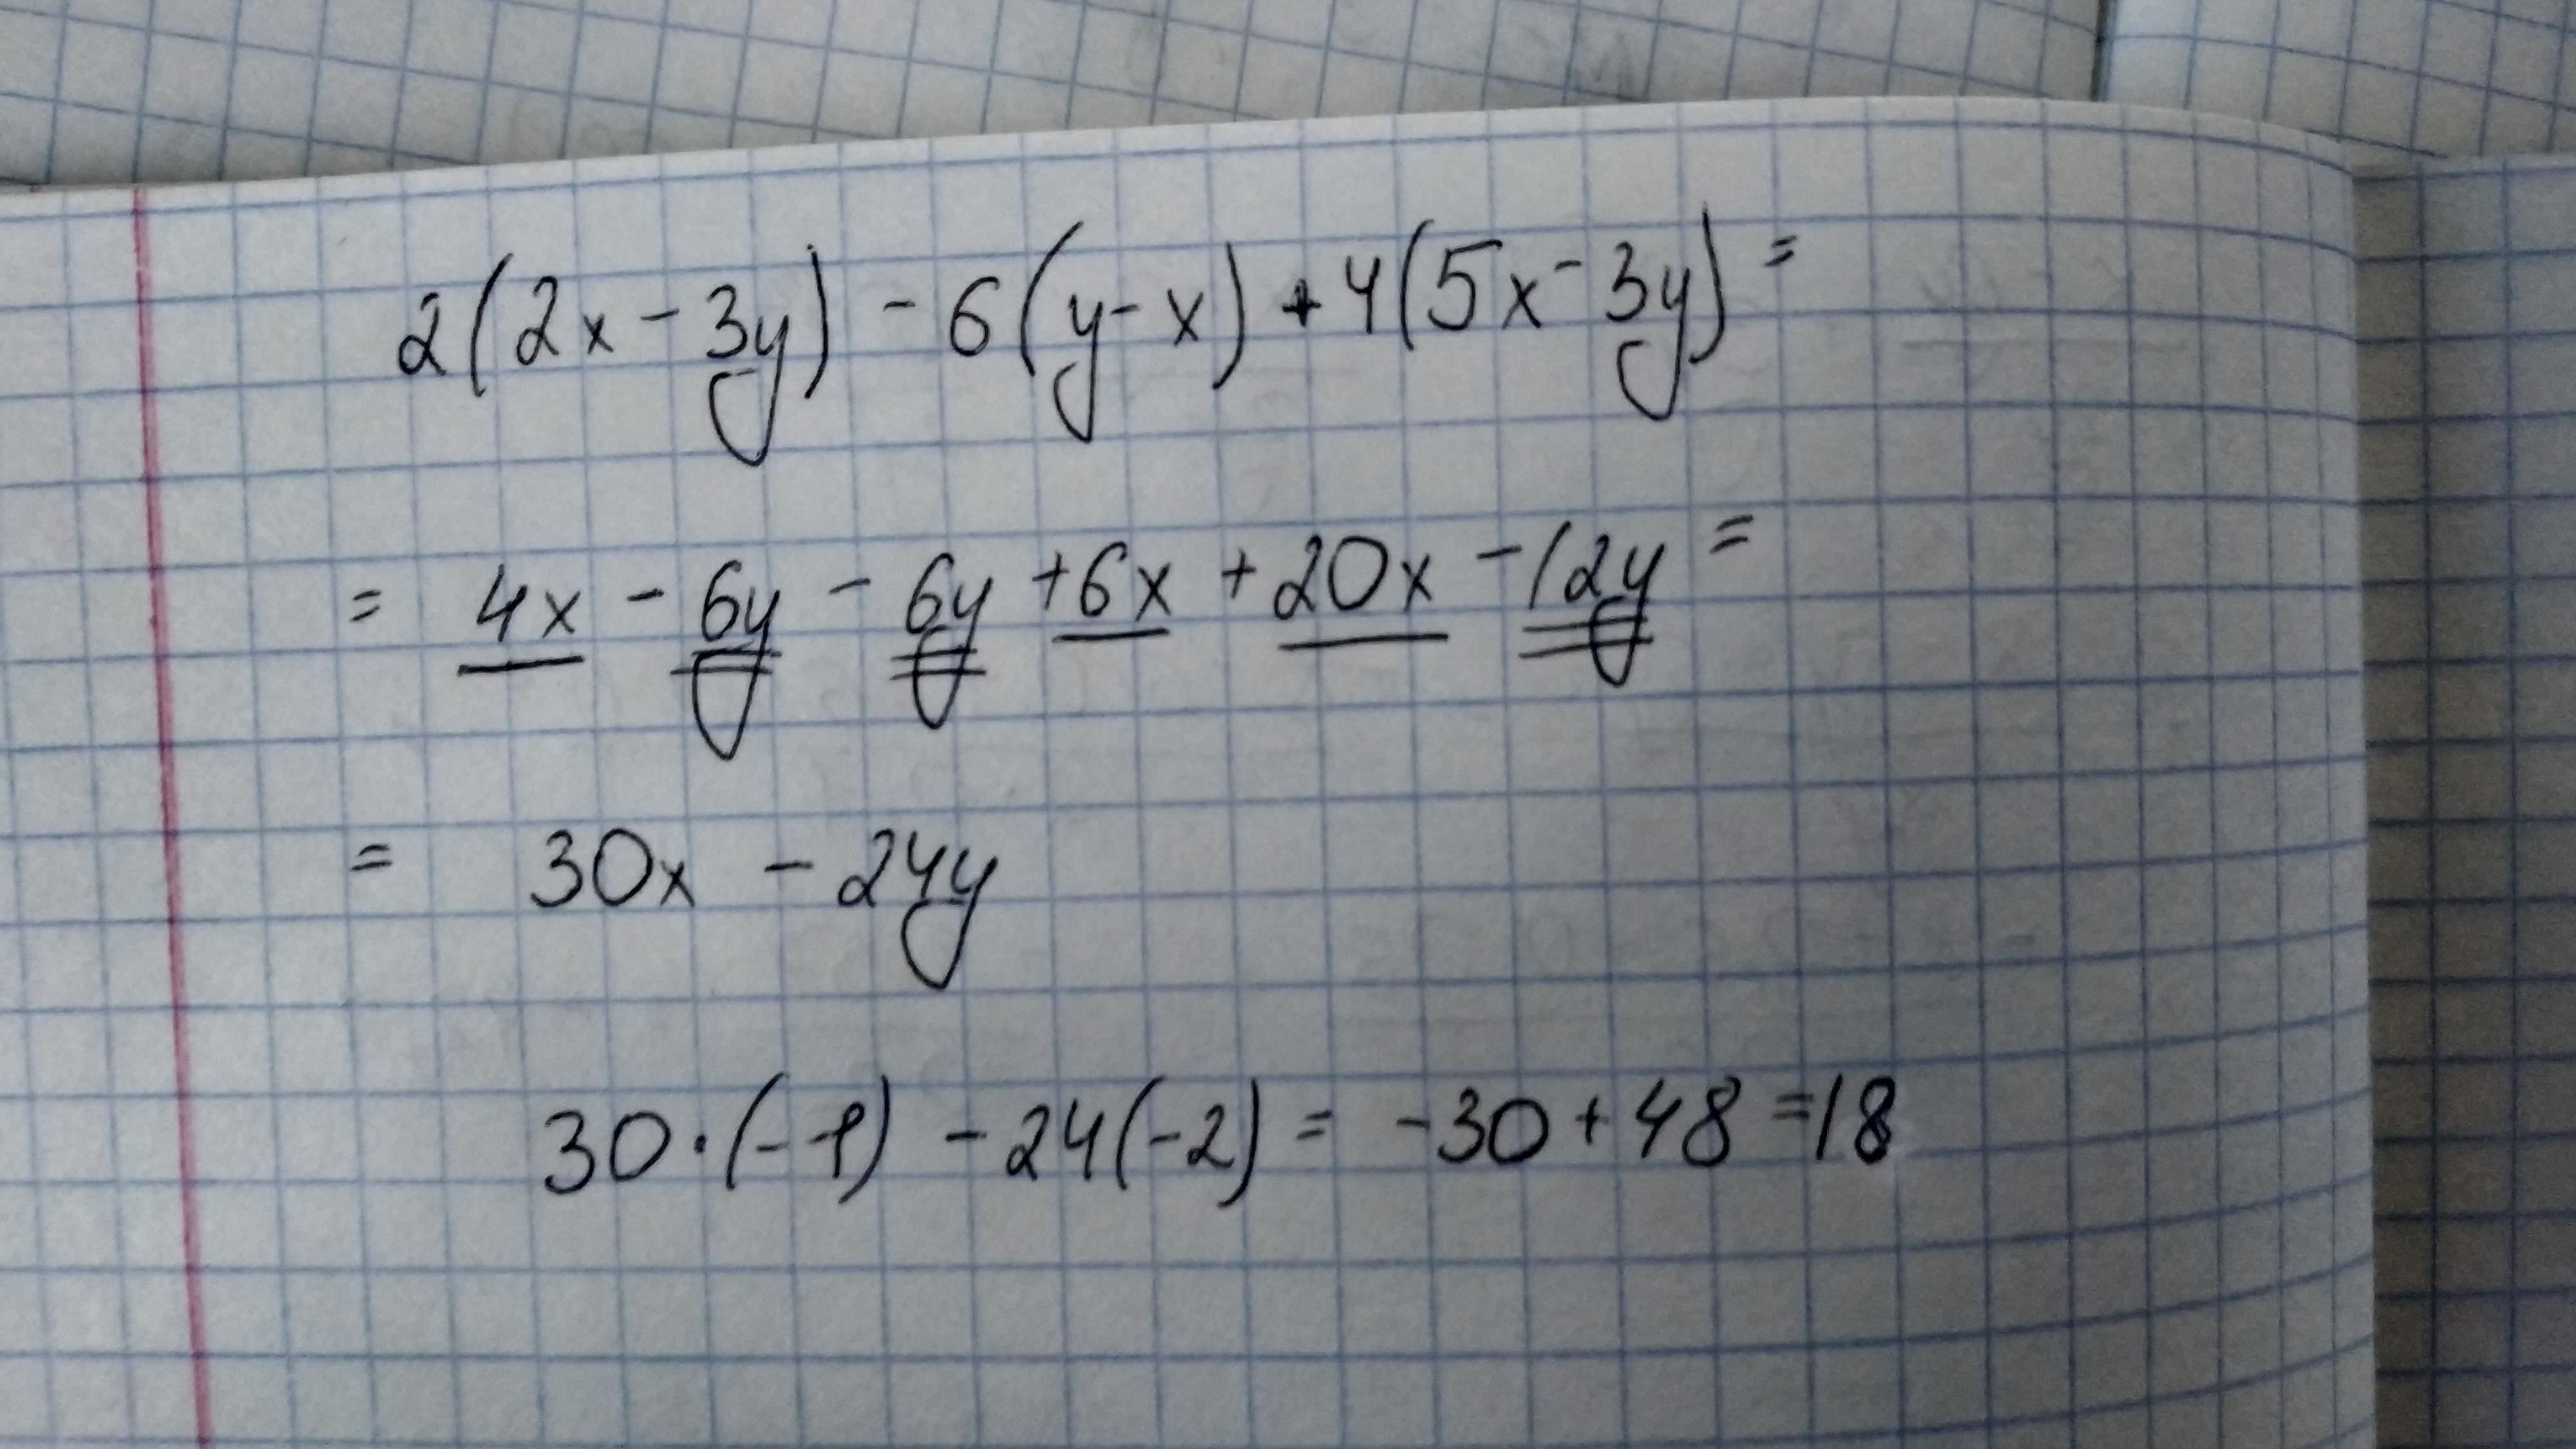 2(2x - 3y) - 6(y - x) + 4(5x - 3y) =
= 4x - 6y - 6y + 6x + 20x - 12y =
= 30x - 24y
30 · (-1) - 24(-2) = -30 + 48 = 18